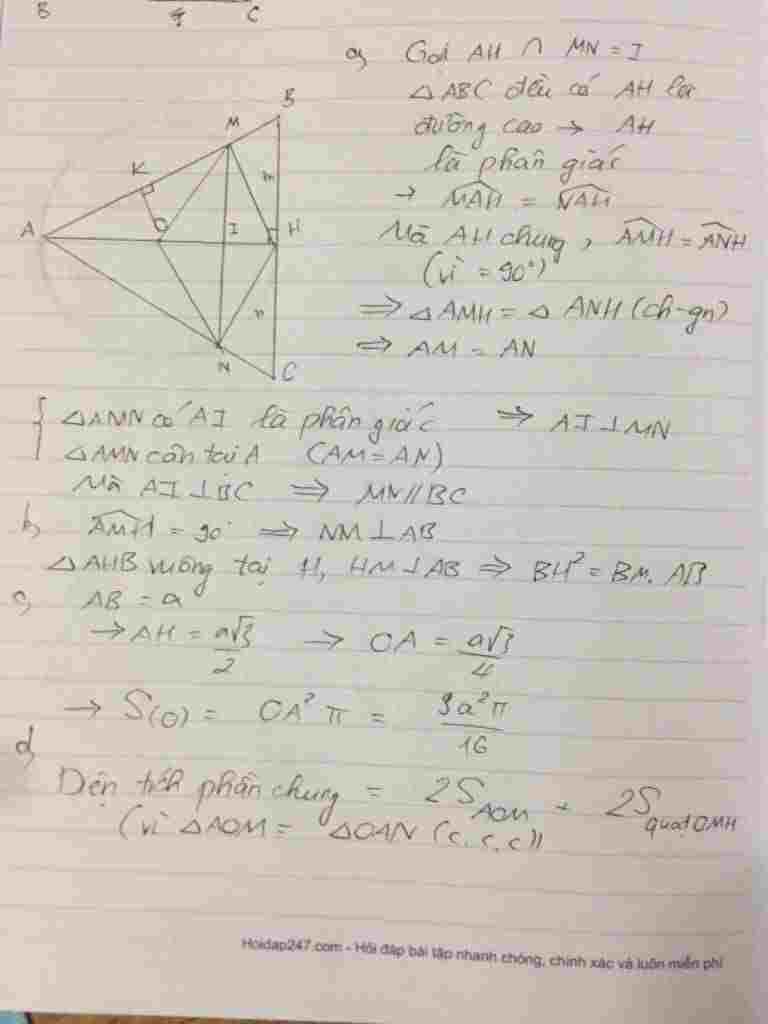 B
C
a) Gọi AH ∩ MN = I
△ABC đều có AH là
đường cao → AH
là phân giác
→ MAH = NAH
Mà AH chung, AMH = ANH
(vì = 90°)
⇒ △AMH = △ANH (ch-gn)
⇒ AM = AN
B
M
K
m
A
O
I
H
n
N
C
△AMN có AI là phân giác ⇒ AI ⊥ MN
△AMN cân tại A (AM = AN)
Mà AI ⊥ BC ⇒ MN // BC
b, AMH = 90° ⇒ NM ⊥ AB
△AHB vuông tại H, HM ⊥ AB ⇒ BH² = BM. AB
c, AB = a
→ AH = a√3/2 → OA = a√3/4
→ S(O) = OA² π = 3a²π/16
d,
Diện tích phần chung = 2S AOM + 2S quạt OMH
(vì △AOM = △OAN (c.c.c))
Hoidap247.com - Hỏi đáp bài tập nhanh chóng, chính xác và luôn miễn phí